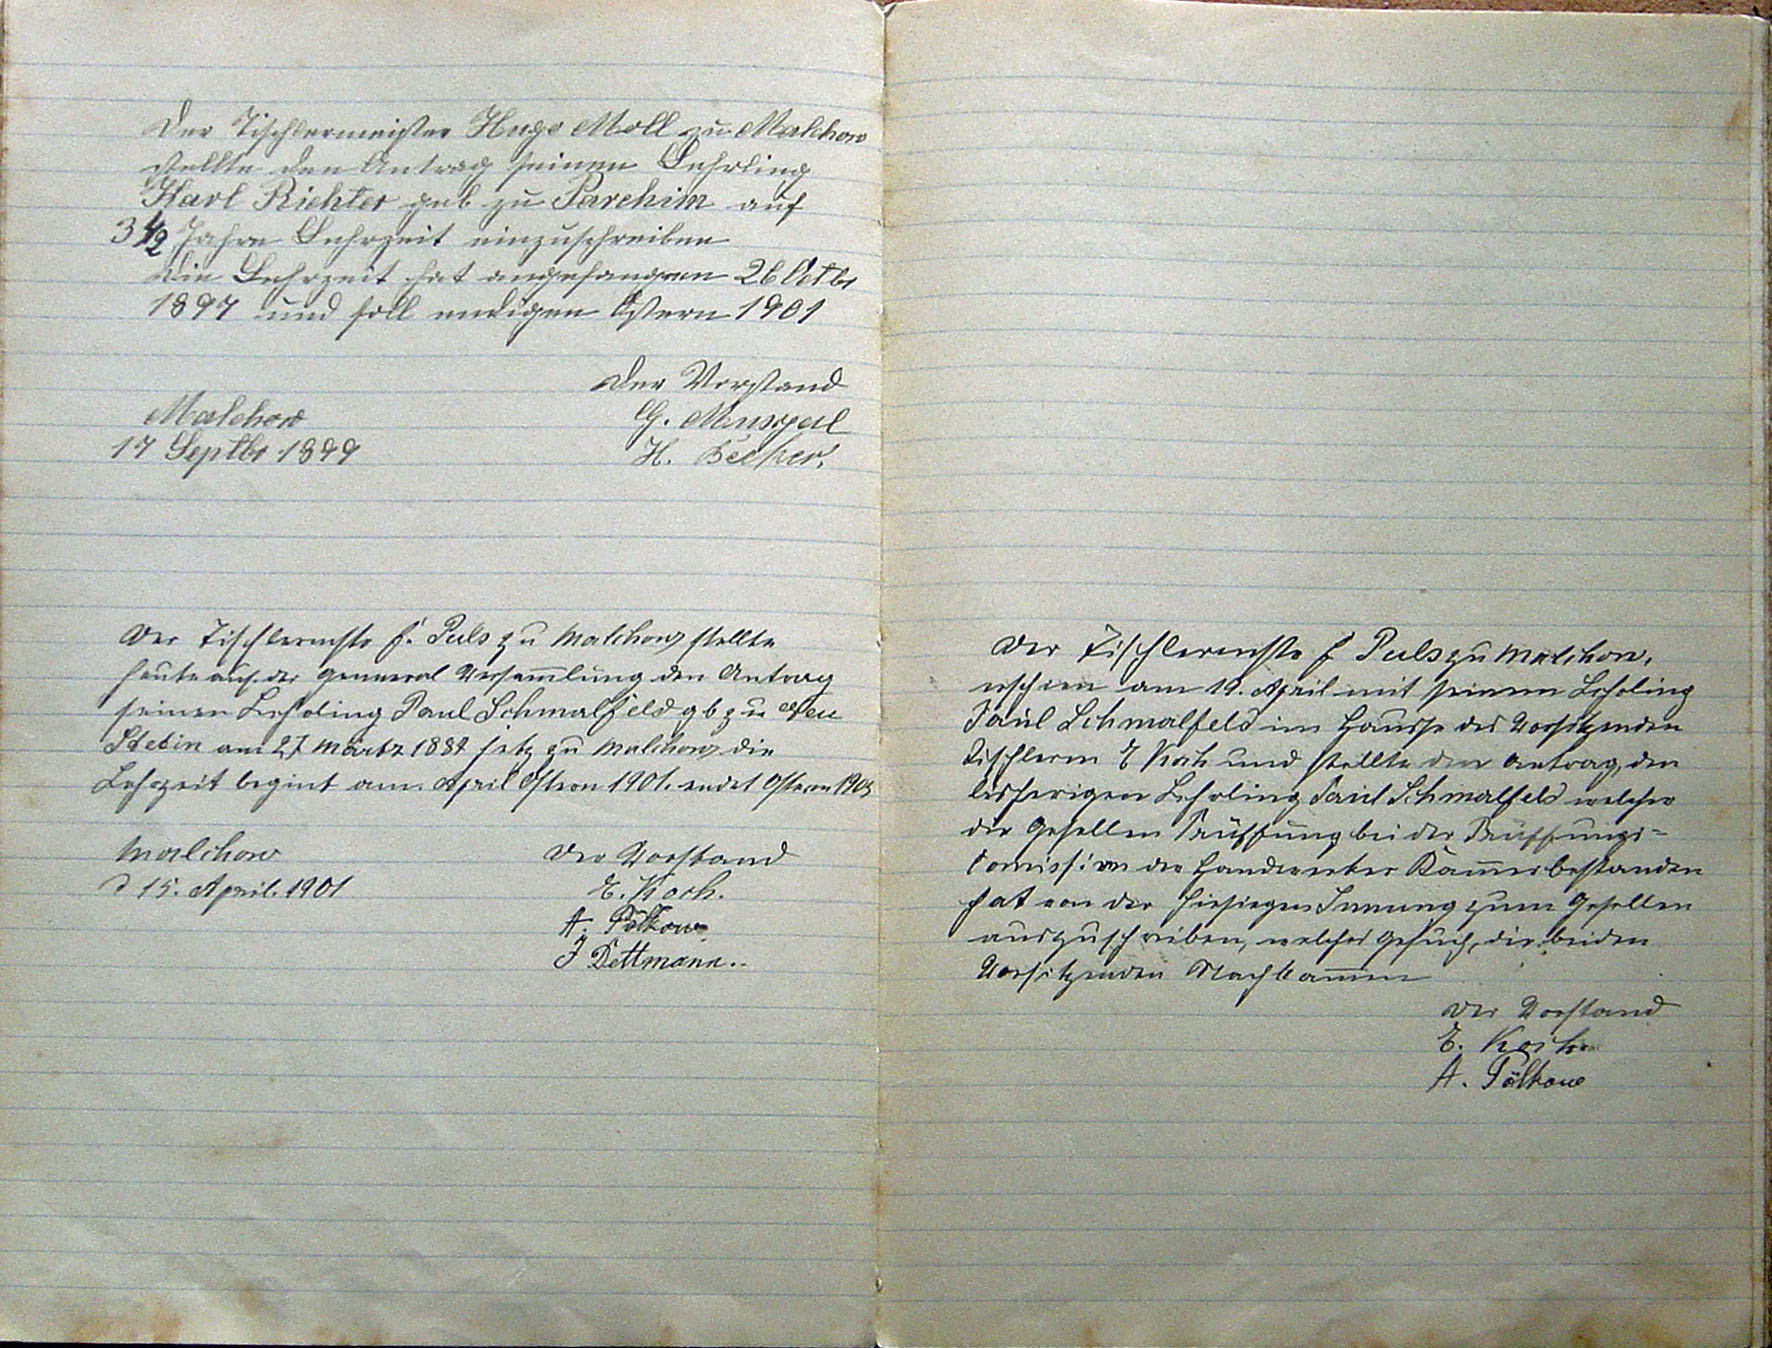 Der Tischlermeister Hugo Moll zu Malchow
stellte den Antrag seinen Lehrling
Karl Richter geb zu Parchim auf
3 1/2 Jahre Lehrzeit einzuschreiben
Die Lehrzeit hat angefangen 26 Octbr
1897 und soll endigen Ostern 1901
Der Vorstand
Malchow
G.
17 Septbr 1899
H. Becker.
Der Tischlermstr F. Puls zu Malchow stellte
heute auf der Genneral Versam̅lung den Antrag
seinen Lehrling Paul Schmalfeld gb zu Neu
Stetin am 27 Märtz 1884 jetz zu Malchow die
Lehrzeit begint am April Ostern 1901. endet Ostern 1905
Malchow
Der Vorstand
d 15. April. 1901
E. Koch.
A. Pölkow
J Dettmann..
Der Tischlermstr F Puls zu Malchow,
erschien am 19. April mit seinem Lehrling
Paul Schmalfeld im Hausse des Vorsitzenden
Tischlerm E Koch und stellte den Antrag, den
bisherigen Lehrling Paul Schmalfeld welcher
die Gesellen Prüffung bei der Prüffungs=
Comission der Handwerker Kam̅er bestanden
hat von der hiesigen Innung zum Gesellen
auszuschreiben, welches Gesuch, die beiden
Vorsitzenden Nachkam̅en
Der Vorstand
E. Koch
A. Pölkow